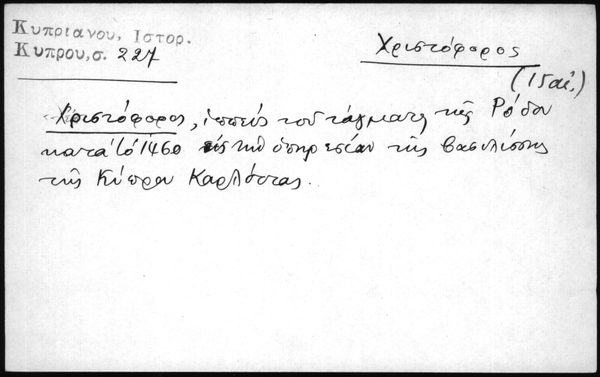 Κυπριανου, Ιστορ.
Κυπρου, σ. 227
Χριστόφορος
(15 αἰ.)
Χριστόφορος, ἱππεὺς τοῦ τάγματος τῆς Ρόδου
κατὰ τὸ 1460 εἰς τὴν ὑπηρεσίαν τῆς βασιλίσσης
τῆς Κύπρου Καρλόττας.